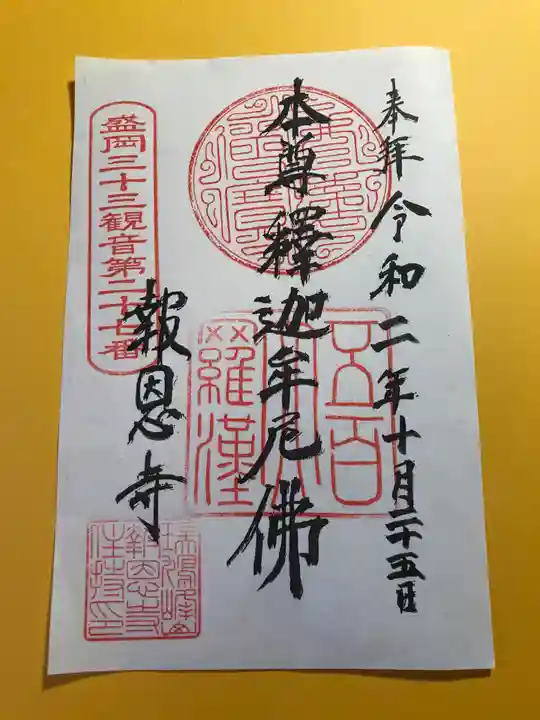 来拝 令和二年十月二十五日
本尊釋迦牟尼佛
五百
羅漢
盛岡三十三観音第二十七番
報恩寺
報恩寺
住持印